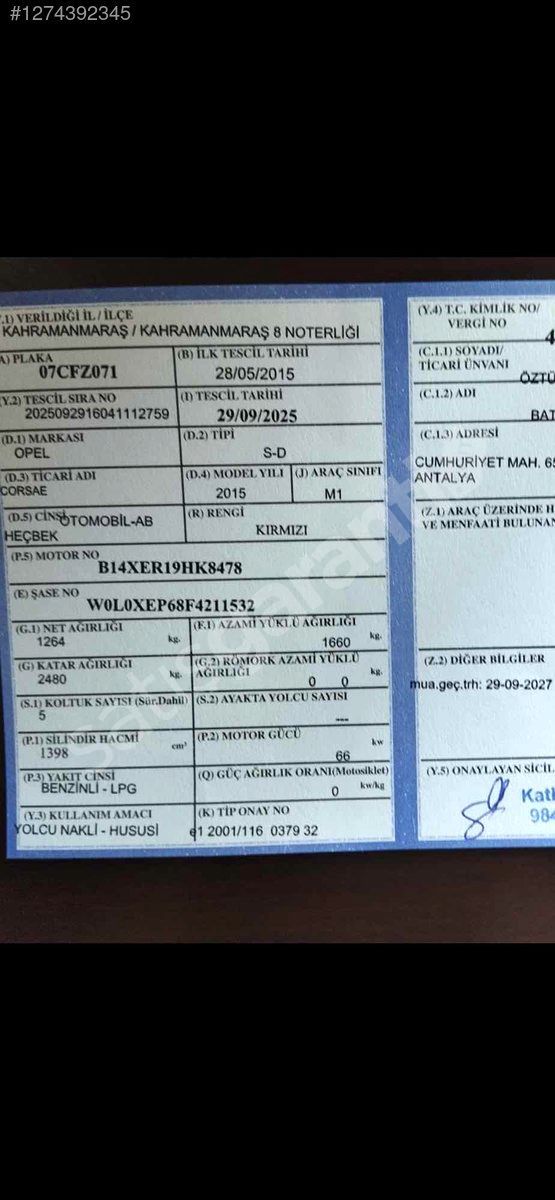 #1274392345
(Y.1) VERİLDİĞİ İL / İLÇE
KAHRAMANMARAŞ / KAHRAMANMARAŞ 8 NOTERLİĞİ
(A) PLAKA
07CFZ071
(B) İLK TESCİL TARİHİ
28/05/2015
(Y.2) TESCİL SIRA NO
2025092916041112759
(I) TESCİL TARİHİ
29/09/2025
(D.1) MARKASI
OPEL
(D.2) TİPİ
S-D
(D.3) TİCARİ ADI
CORSAE
(D.4) MODEL YILI
2015
(J) ARAÇ SINIFI
M1
(D.5) CİNSİ
OTOMOBİL-AB
HEÇBEK
(R) RENGİ
KIRMIZI
(P.5) MOTOR NO
B14XER19HK8478
(E) ŞASE NO
W0L0XEP68F4211532
(G.1) NET AĞIRLIĞI
1264 kg.
(F.1) AZAMİ YÜKLÜ AĞIRLIĞI
1660 kg.
(G) KATAR AĞIRLIĞI
2480 kg.
(G.2) RÖMORK AZAMİ YÜKLÜ
AĞIRLIĞI
0 0 kg.
(S.1) KOLTUK SAYISI (Sür.Dahil)
5
(S.2) AYAKTA YOLCU SAYISI
---
(P.1) SİLİNDİR HACMİ
1398 cm³
(P.2) MOTOR GÜCÜ
66 kw
(P.3) YAKIT CİNSİ
BENZİNLİ - LPG
(Q) GÜÇ AĞIRLIK ORANI(Motosiklet)
0 kw/kg
(Y.3) KULLANIM AMACI
YOLCU NAKLİ - HUSUSİ
(K) TİP ONAY NO
e1 2001/116 0379 32
(Y.4) T.C. KİMLİK NO/
VERGİ NO
4
(C.1.1) SOYADI/
TİCARİ ÜNVANI
ÖZTÜ
(C.1.2) ADI
BAT
(C.1.3) ADRESİ
CUMHURİYET MAH. 65
ANTALYA
(Z.1) ARAÇ ÜZERİNDE H
VE MENFAATİ BULUNAN
(Z.2) DİĞER BİLGİLER
mua.geç.trh: 29-09-2027
(Y.5) ONAYLAYAN SİCİL
Katl
984